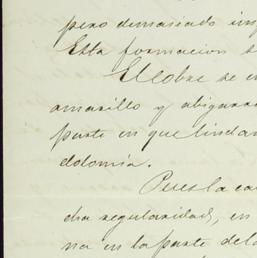 pero demasiado imp
Esta formacion s
El cobre se en
amarillo y abigarra
parte en que lindan
dolomia.
Pues la ca
dra regularidad, en
na en la parte del